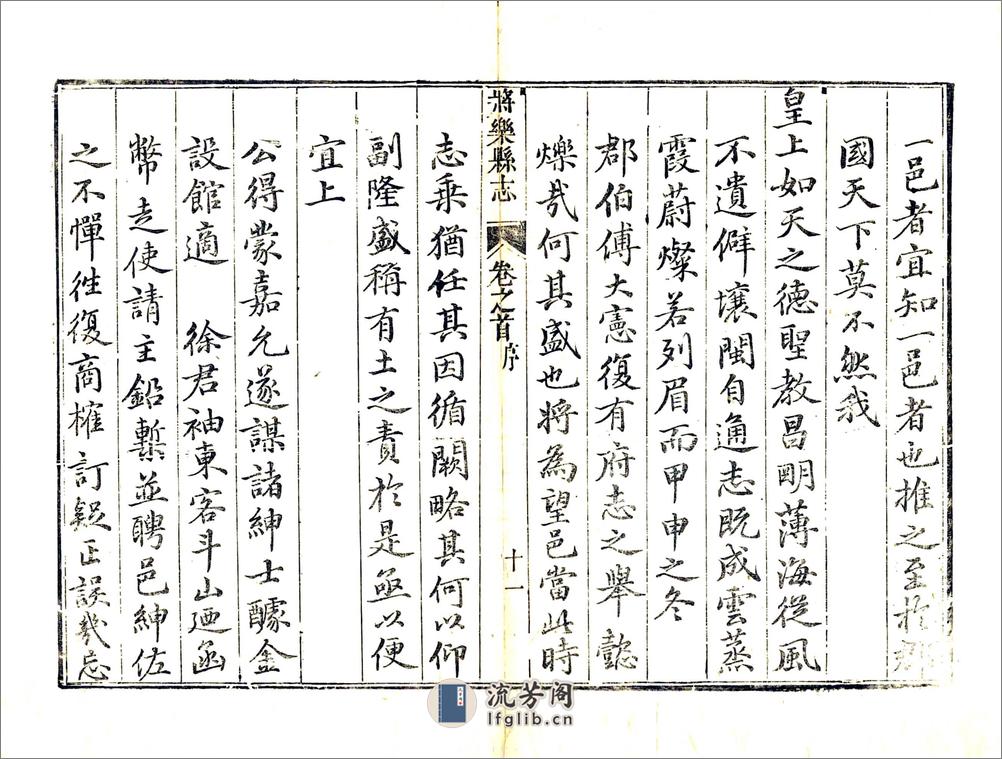 一邑者宜知一邑者也推之至於郡
國天下莫不然我
皇上如天之德聖教昌明薄海從風
不遺僻壤閩自通志既成雲蒸
霞蔚燦若列眉而甲申之冬
郡伯傅大憲復有府志之舉懿
爍哉何其盛也將為望邑當此時
將樂縣志
卷之首序
十一
志乗猶任其因循闕略其何以仰
副隆盛稱有土之責於是亟以便
宜上
公得蒙嘉允遂謀諸紳士醵金
設館適 徐君袖東客斗山廼函
幣走使請主鉛槧並聘邑紳佐
之不憚徃復商榷訂疑正誤幾忘
流芳阁
lfglib.cn